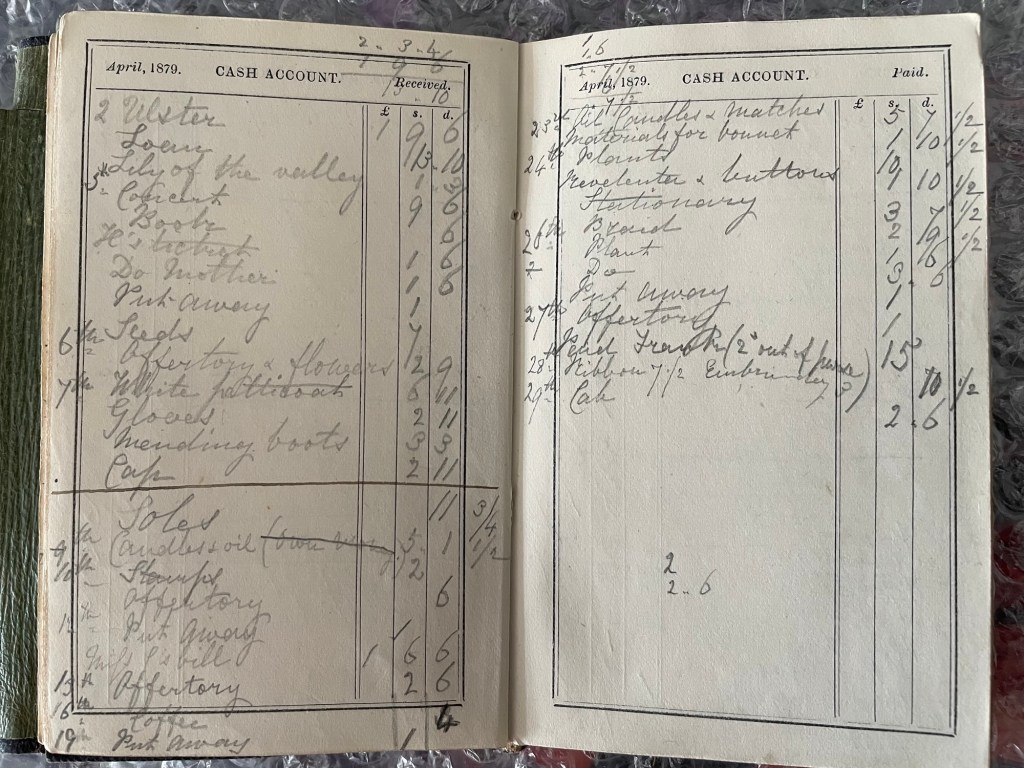 2 - 3 - 4
1 9 6
13 - 10
April, 1879. CASH ACCOUNT. Received.
£ s. d.
2 Ulster 1 9 6
Loan 13 - 10
5th Lily of the valley 1 - 6
Concert 9 6
Book 6
H's 1 6
Do Mother 6
Put away 1
6th Seeds 7
Offertory & flowers 2 9
7th White petticoat 6 11
Gloves 2 11
Mending boots 3 3
Cap 2 11
Soles 11 3/4
9th Candles & oil (own 5 - 1 1/2
10th Stamps 2
Offertory 6
Put away 1
Miss bill 1 6 6
15th Offertory 2 6
16th Coffee 4
19th Put away 1
1,6
2 - 7 1/2
April, 1879. CASH ACCOUNT. Paid.
£ s. d.
23rd Oil Candles & matches 5 7 1/2
Materials for bonnet 1 10 1/2
24th Plants 10
& buttons 1 10 1/2
Stationary 3 7 1/2
26th Braid 2 9 1/2
Plant 1 6
Do 3 - 6
Put away 1
27th Offertory 1
28th (2d out of purse) 15
Ribbon 7 1/2 Embroidery 3 10 1/2
29th Cab 2 - 6
2
2 - 6